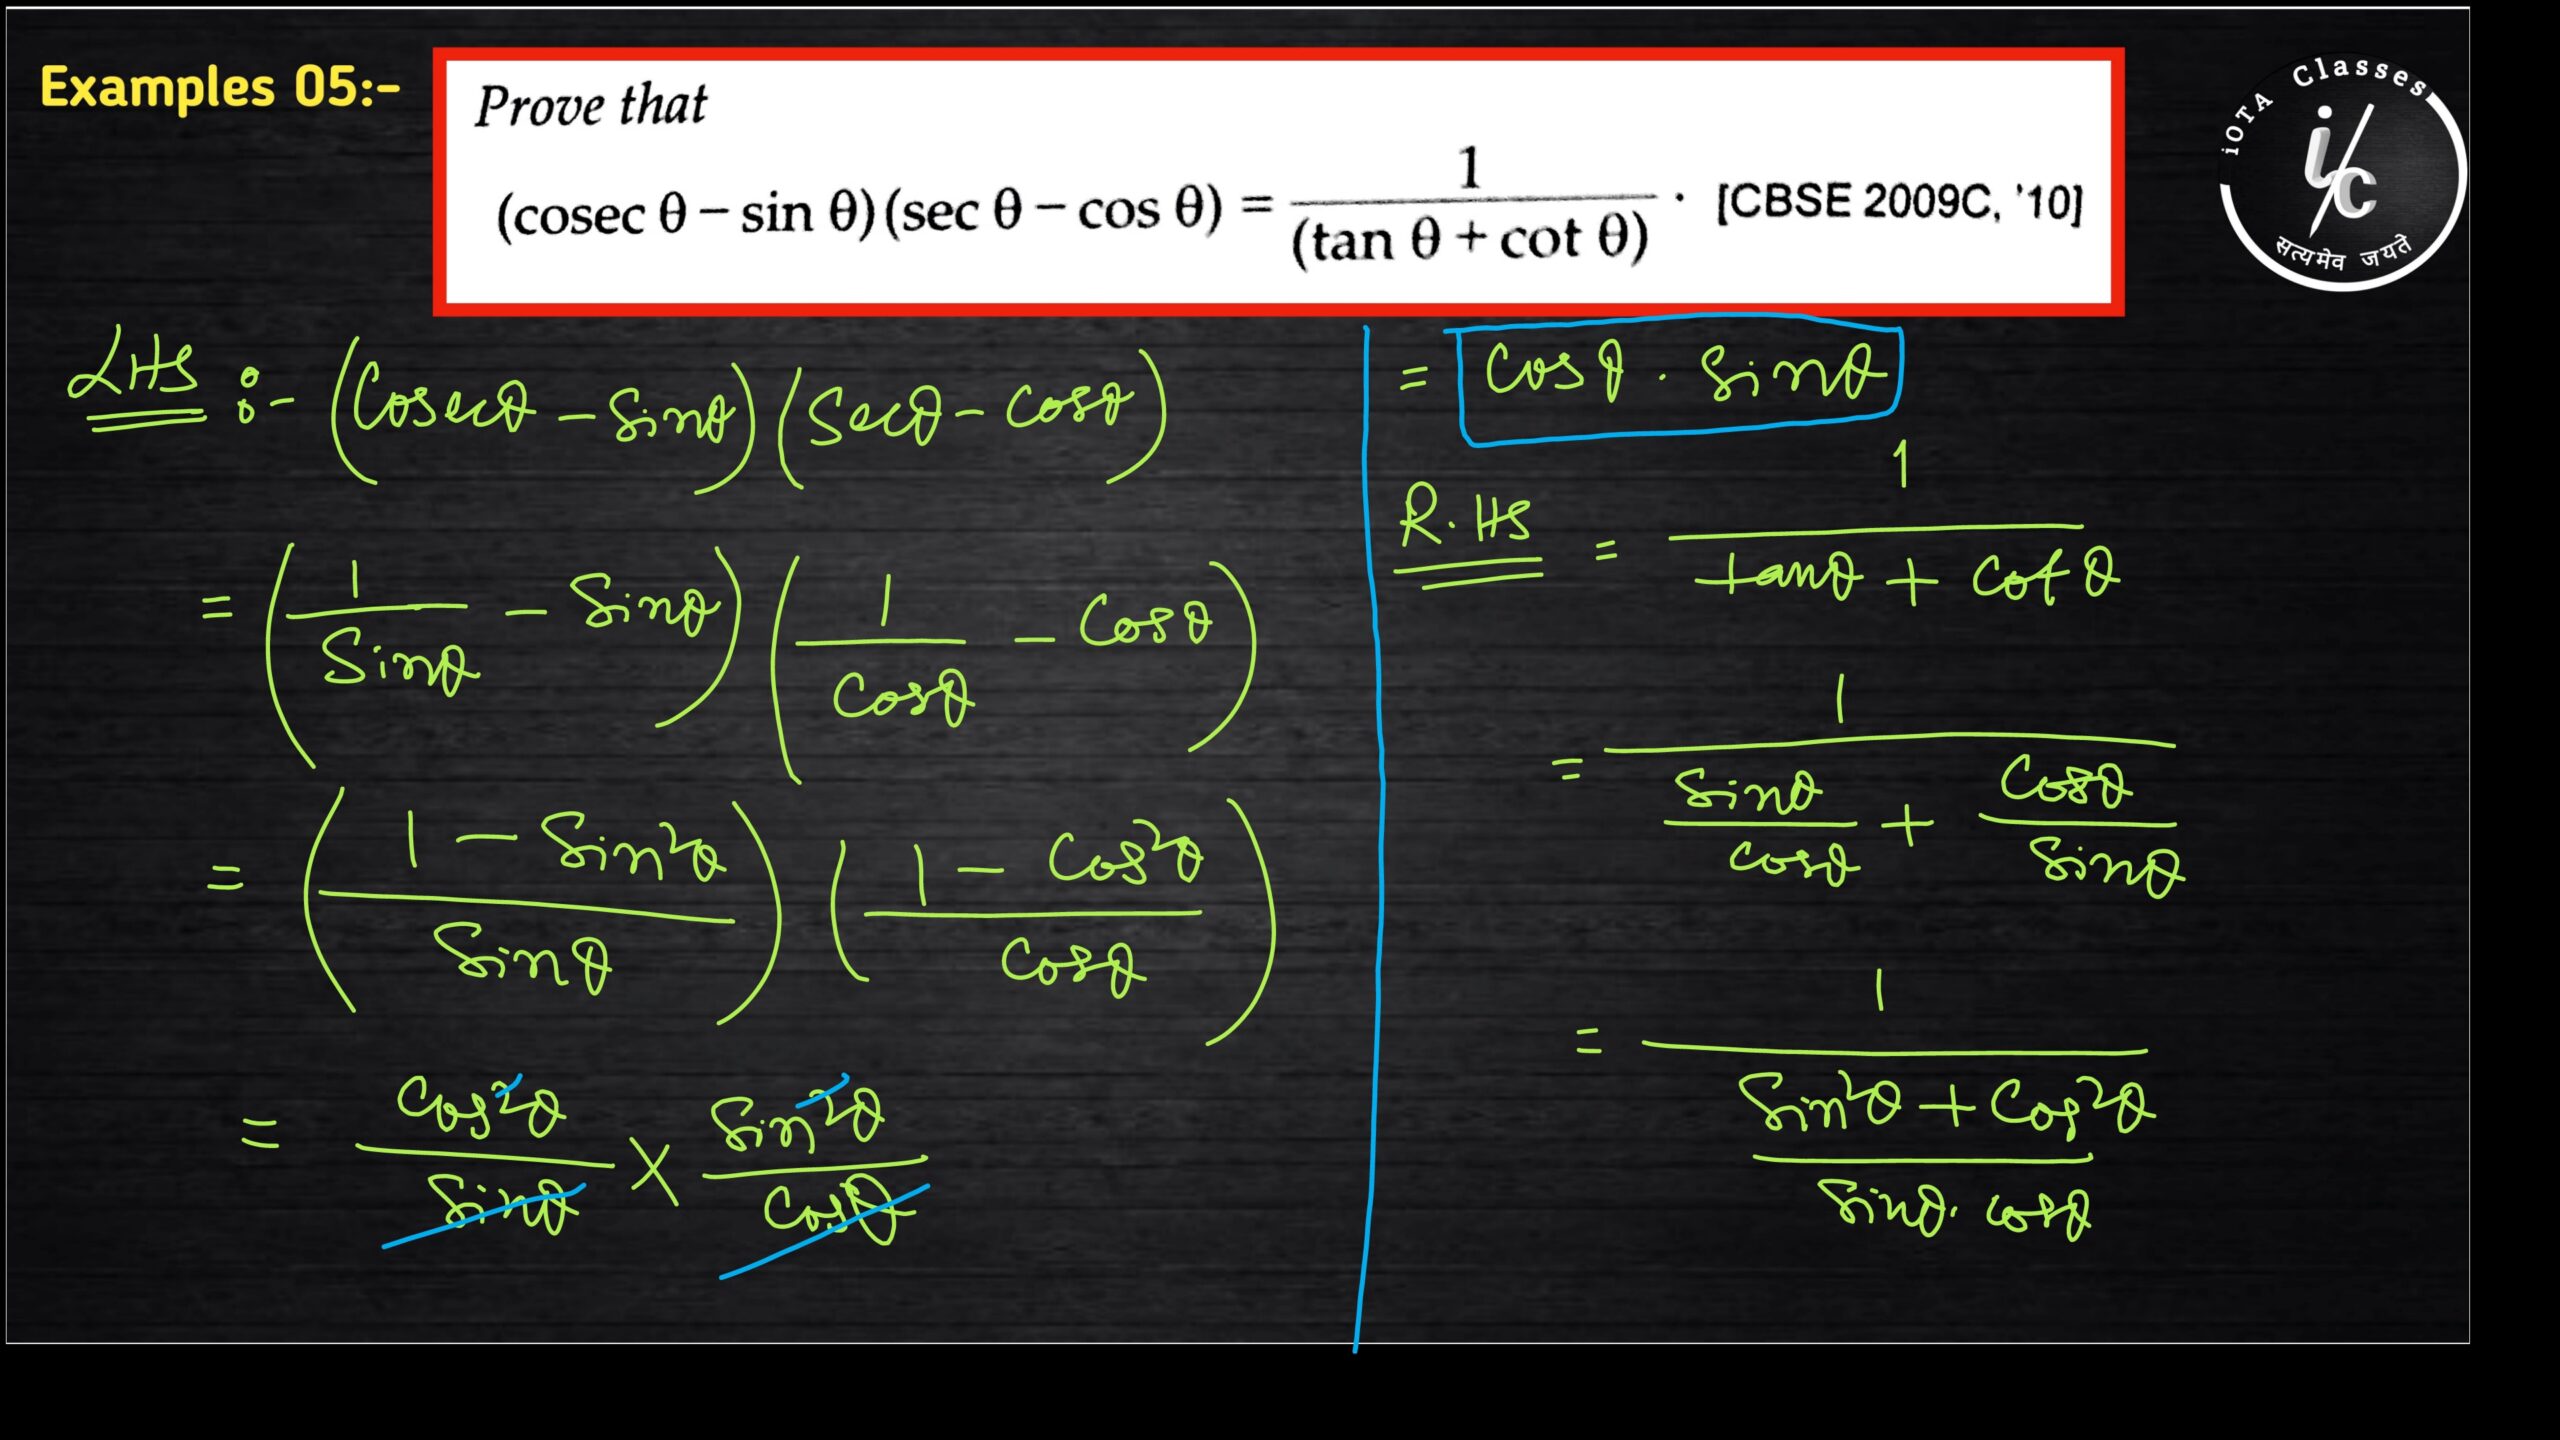 Examples 05:-
Prove that
(cosec θ − sin θ)(sec θ − cos θ) = 1/(tan θ + cot θ) · [CBSE 2009C, '10]
iOTA Classes
i/C
सत्यमेव जयते
LHS :- (Cosecθ - Sinθ)(Secθ - Cosθ)
= (1/Sinθ - Sinθ)(1/Cosθ - Cosθ)
= ((1 - Sin²θ)/Sinθ)((1 - Cos²θ)/Cosθ)
= Cos²θ/Sinθ × Sin²θ/Cosθ
= Cosθ . Sinθ
R.HS = 1/(tanθ + Cotθ)
= 1/(Sinθ/Cosθ + Cosθ/Sinθ)
= 1/((Sin²θ + Cos²θ)/(Sinθ. Cosθ))